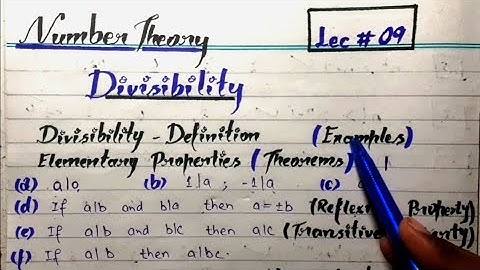 Number Theory
Lec # 09
Divisibility
Divisibility - Definition (Examples)
Elementary Properties (Theorems)
(a) a|0 (b) 1|a ; -1|a (c)
(d) If a|b and b|a then a=±b (Reflexi Property)
(e) If a|b and b|c then a|c (Transitive
(f) If a|b then a|bc.